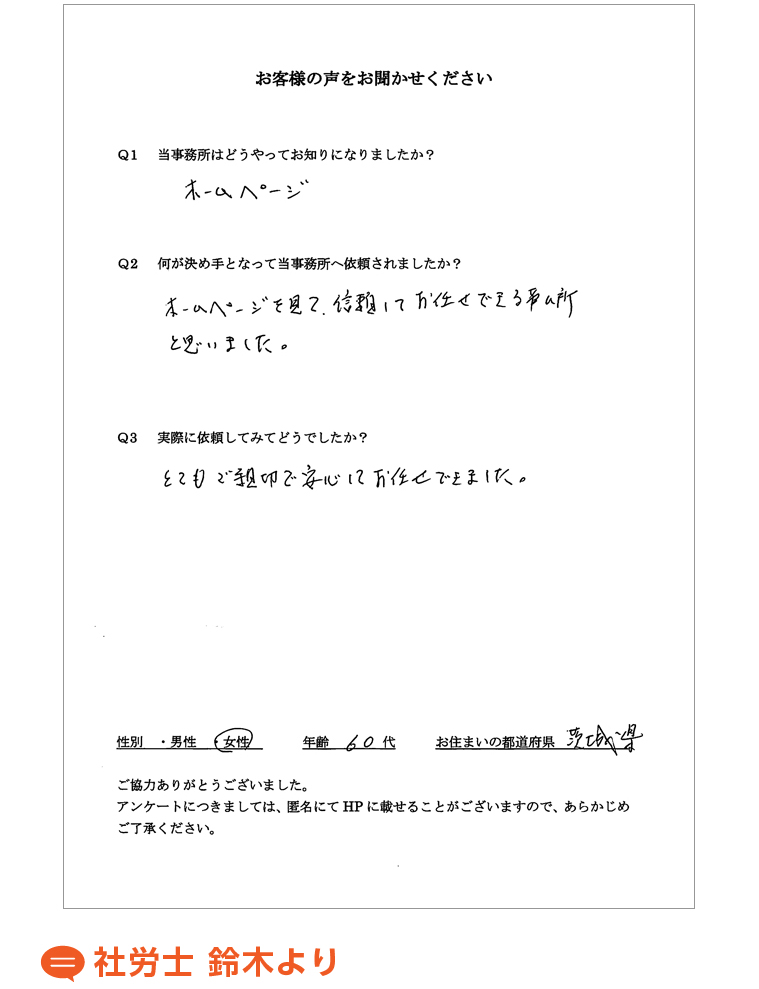 お客様の声をお聞かせください
Q1 当事務所はどうやってお知りになりましたか？
ホームページ
Q2 何が決め手となって当事務所へ依頼されましたか？
ホームページを見て、信頼してお任せできる事ム所
と思いました。
Q3 実際に依頼してみてどうでしたか？
とてもご親切で安心してお任せできました。
性別 ・男性 ・女性 年齢 60代 お住まいの都道府県 茨城県
ご協力ありがとうございました。
アンケートにつきましては、匿名にてHPに載せることがございますので、あらかじめ
ご了承ください。
社労士 鈴木より